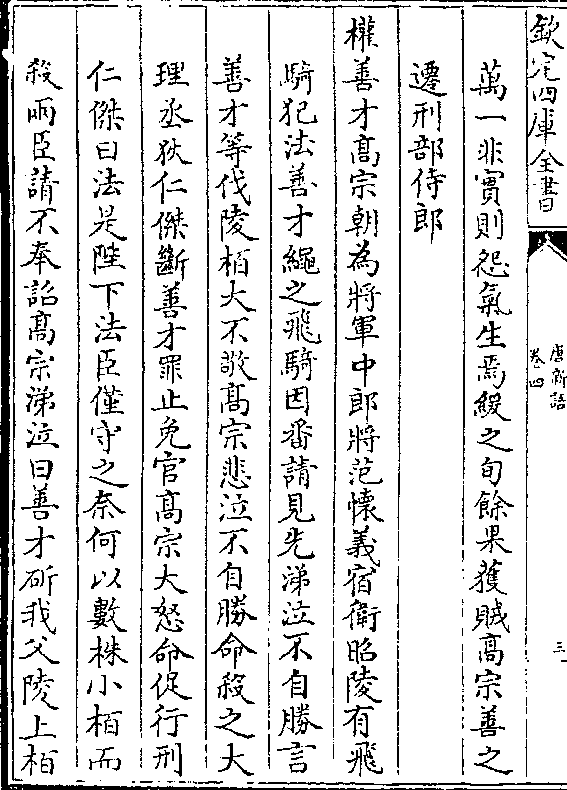 欽定四庫全書
唐新語
卷四
三
萬一非實則怨氣生焉緩之旬餘果獲賊髙宗善之
遷刑部侍郎
權善才髙宗朝為將軍中郎將范懷義宿衛昭陵有飛
騎犯法善才繩之飛騎因番請見先涕泣不自勝言
善才等伐陵栢大不敬髙宗悲泣不自勝命殺之大
理丞狄仁傑斷善才罪止免官髙宗大怒命促行刑
仁傑曰法是陛下法臣僅守之奈何以數株小栢而
殺兩臣請不奉詔髙宗涕泣曰善才斫我父陵上栢